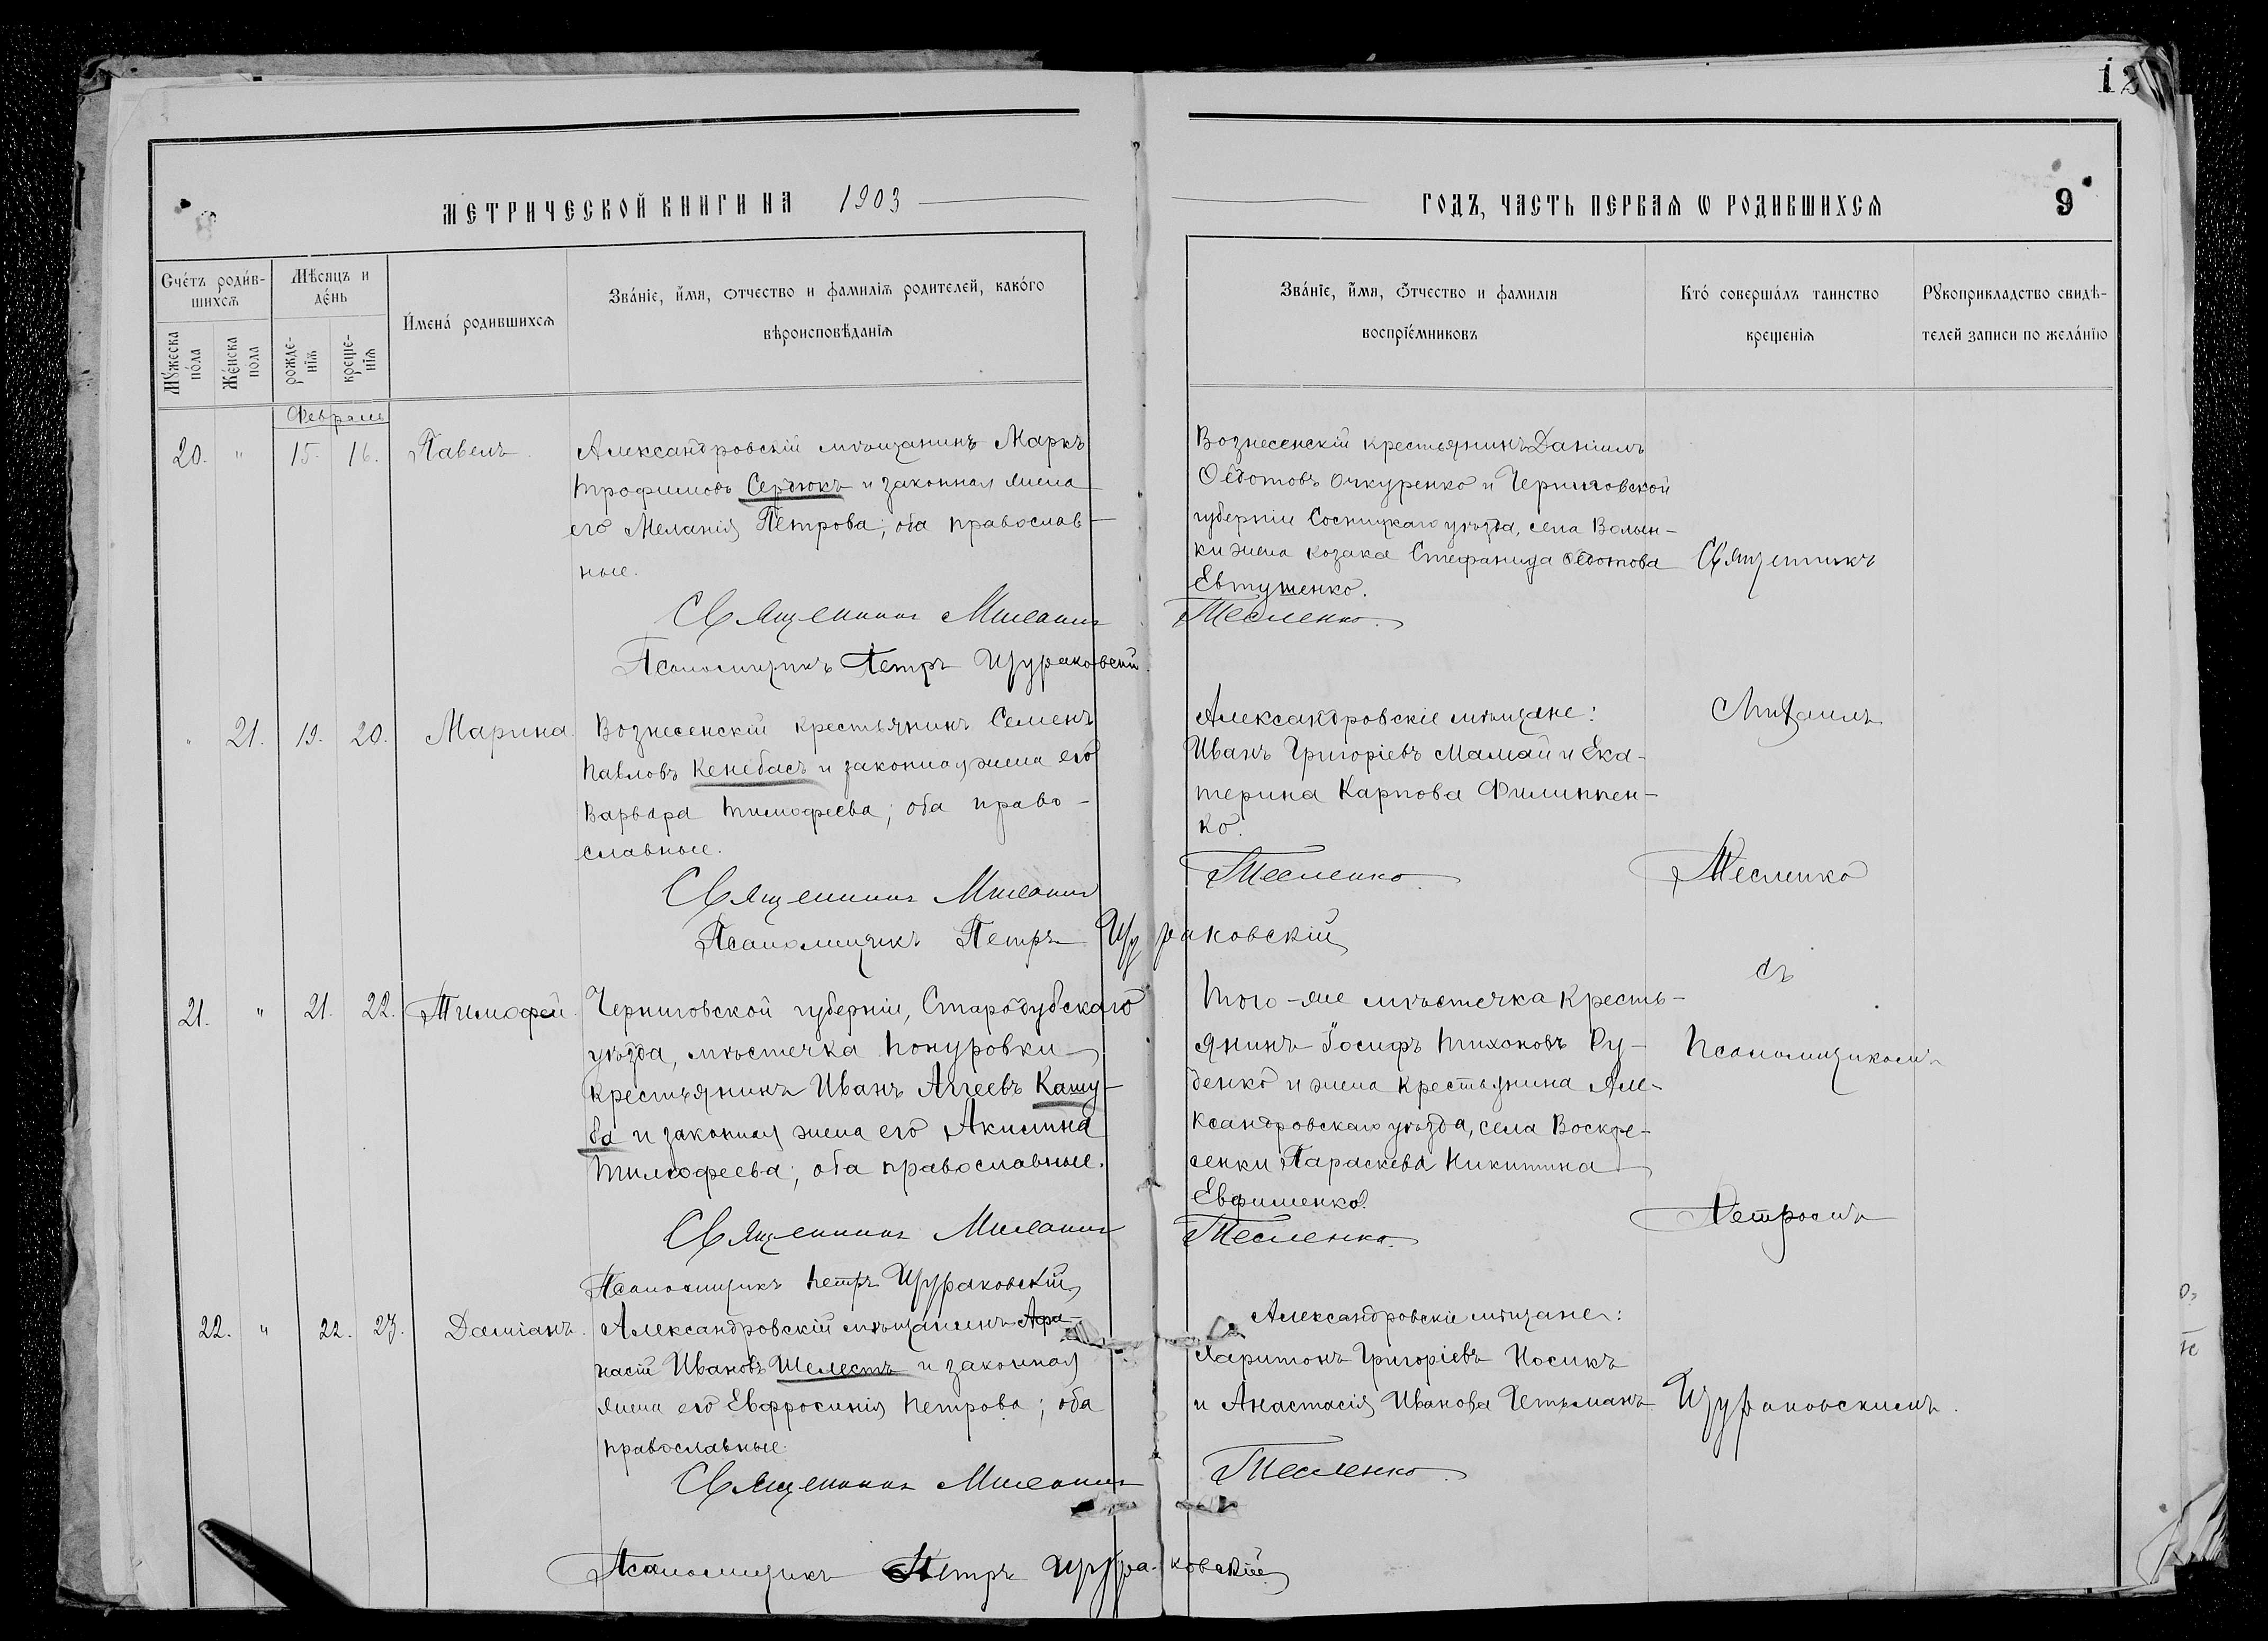 12
МЕТРИЧЕСКОЙ КНИГИ НА 1903
ГОДЪ, ЧАСТЬ ПЕРВАЯ Ѡ РОДИВШИХСЯ
9
Счетъ родив-
шихся
Мѣсяцъ и
день
Мужеска
пола
Женска
пола
рожде-
нія
креще-
нія
Имена родившихся
Званіе, имя, отчество и фамилія родителей, какого
вѣроисповѣданія
Званіе, имя, отчество и фамилія
воспріемниковъ
Кто совершалъ таинство
крещенія
Рукоприкладство свидѣ-
телей записи по желанію
Февраль
20. " 15. 16. Павелъ.
Александровскій мѣщанинъ Маркъ
Трофимовъ Сердюкъ и законная жена
его Меланія Петрова; оба православ-
ные.
Священникъ Михаилъ Тесленко.
Псаломщикъ Петръ Щураковскій.
Вознесенскій крестьянинъ Даніилъ
Ѳедотовъ Очкуренко и Черниговской
губерніи Сосницкаго уѣзда, села Волын-
ки жена козака Стефанида Ѳедотова
Евтушенко.
" 21. 19. 20. Марина.
Вознесенскій крестьянинъ Семенъ
Павловъ Кенебасъ и законная жена его
Варвара Тимофеева; оба право-
славные.
Священникъ Михаилъ Тесленко.
Псаломщикъ Петръ Щураковскій
Александровскіе мѣщане:
Иванъ Григоріевъ Мамай и Ека-
терина Карпова Филиппен-
ко.
21. " 21. 22. Тимофей.
Черниговской губерніи, Стародубскаго
уѣзда, мѣстечка Понуровки
крестьянинъ Иванъ Аггеевъ Кашу-
ба и законная жена его Акилина
Тимофеева; оба православные.
Священникъ Михаилъ Тесленко.
Псаломщикъ Петръ Щураковскій
Того-же мѣстечка кресть-
янинъ Іосифъ Тихоновъ Ру-
денко и жена крестьянина Але-
ксандровскаго уѣзда, села Воскре-
сенки Параскева Никитина
Евфименко.
22. " 22. 23. Даміанъ.
Александровскій мѣщанинъ Афа-
насій Ивановъ Шелестъ и законная
жена его Евфросинія Петрова; оба
православные.
Священникъ Михаилъ Тесленко.
Псаломщикъ Петръ Щураковскій
Александровскіе мѣщане:
Харитонъ Григоріевъ Носикъ
и Анастасія Иванова Гетьманъ.
Священникъ
Михаилъ
Тесленко
съ
Псаломщикомъ
Петромъ
Щураковскимъ.